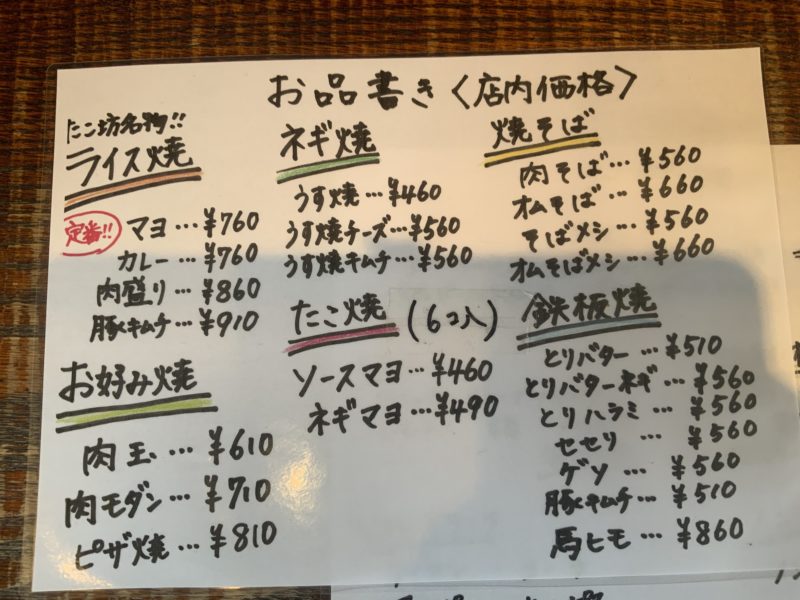 お品書き〈店内価格〉
たこ坊名物!!
ライス焼
定番!! マヨ…¥760
カレー…¥760
肉盛り…¥860
豚キムチ…¥910
お好み焼
肉玉…¥610
肉モダン…¥710
ピザ焼…¥810
ネギ焼
うす焼…¥460
うす焼チーズ…¥560
うす焼キムチ…¥560
たこ焼(6コ入)
ソースマヨ…¥460
ネギマヨ…¥490
焼そば
肉そば…¥560
オムそば…¥660
そばメシ…¥560
オムそばメシ…¥660
鉄板焼
とりバター…¥510
とりバターネギ…¥560
とりハラミ…¥560
セセリ…¥560
ゲソ…¥560
豚キムチ…¥510
馬ヒモ…¥860